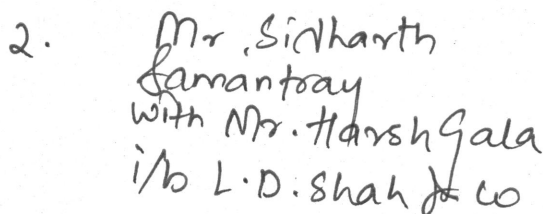 2. Mr. Sidharth
Samantray
with Mr. Harsh Gala
i/b L.D. Shah & Co